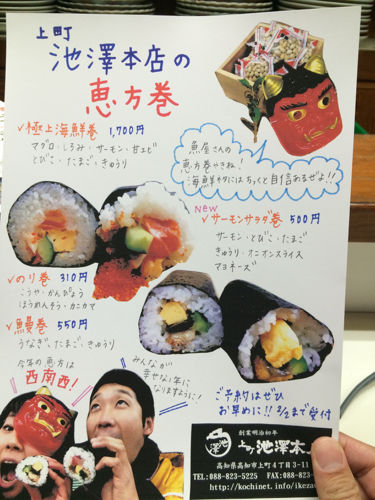 上町
池澤本店の
恵方巻
✓極上海鮮巻 1,700円
マグロ・しろみ・サーモン・甘エビ
とびこ・たまご・きゅうり
魚屋さんの
恵方巻やきね!
海鮮ネタにはちょっと自信あるぜよ!!
New
✓サーモンサラダ巻 500円
サーモン・とびこ・たまご
きゅうり・オニオンスライス
マヨネーズ
✓のり巻 310円
こうや・かんぴょう
ほうめんそう・カニカマ
✓鰻巻 550円
うなぎ・たまご・きゅうり
今年の恵方は
西南西!
みんなが
幸せな1年に
なりますように!
ご予約はぜひ
お早めに!! 2/2まで受付
創業明治初年
上町池澤本
高知県高知市上町4丁目3-11
TEL:088-823-5222 FAX:088-823-5
http://kochinet.info/ikezaw